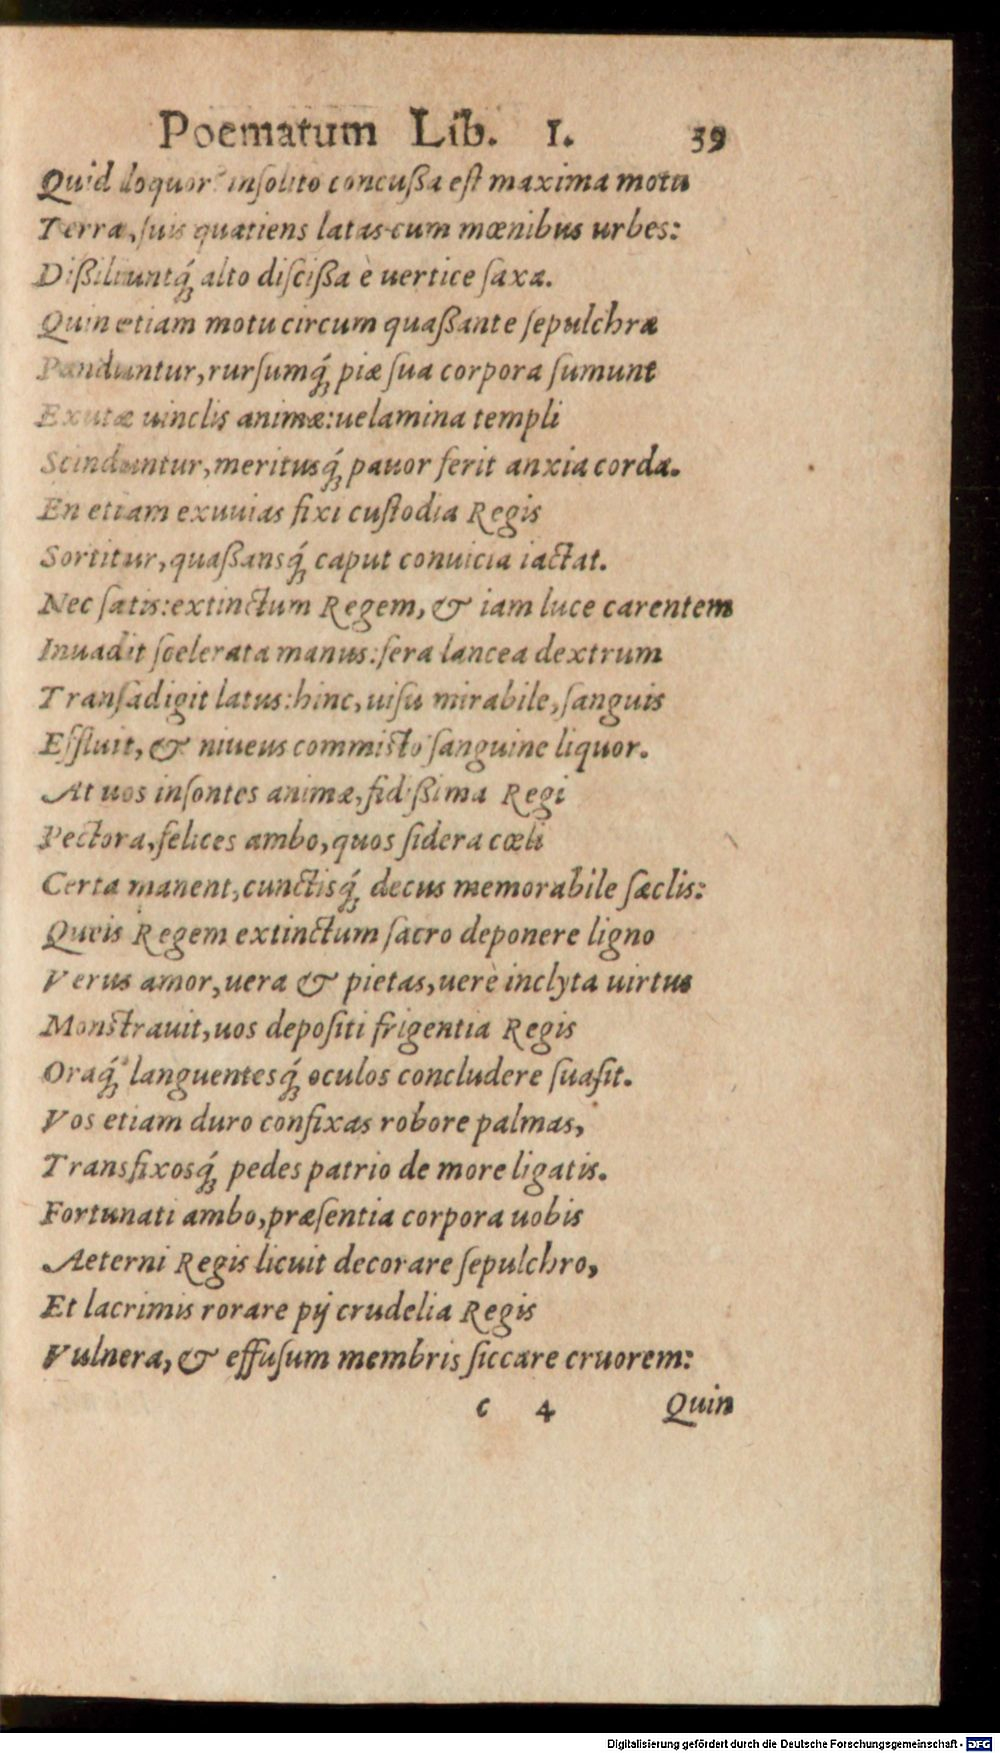 Poematum Lib. I. 39
Quid loquor? inſolito concußa eſt maxima motu
Terra, ſuis quatiens latas cum mœnibus urbes:
Dißiliuntq́ꝫ alto diſcißa è uertice ſaxa.
Quin etiam motu circum quaßante ſepulchra
Panduntur, rurſumq́ꝫ piæ ſua corpora ſumunt
Exutæ uinclis animæ: uelamina templi
Scinduntur, meritusq́ꝫ pauor ferit anxia corda.
En etiam exuuias fixi cuſtodia Regis
Sortitur, quaßansq́ꝫ caput conuicia iactat.
Nec ſatis: extinctum Regem, & iam luce carentem
Inuadit ſcelerata manus: fera lancea dextrum
Transadigit latus: hinc, uiſu mirabile, ſanguis
Effluit, & niueus commiſto ſanguine liquor.
At uos inſontes animæ, fidißima Regi
Pectora, felices ambo, quos ſidera cœli
Certa manent, cunctisq́ꝫ decus memorabile ſæclis:
Queis Regem extinctum ſacro deponere ligno
Verus amor, uera & pietas, uerè inclyta uirtus
Monſtrauit, uos depoſiti frigentia Regis
Oraq́ꝫ languentesq́ꝫ oculos concludere ſuaſit.
Vos etiam duro confixas robore palmas,
Transfixosq́ꝫ pedes patrio de more ligatis.
Fortunati ambo, præſentia corpora uobis
Aeterni Regis licuit decorare ſepulchro,
Et lacrimis rorare pij crudelia Regis
Vulnera, & effuſum membris ſiccare cruorem:
c 4 Quin
Digitalisierung gefördert durch die Deutsche Forschungsgemeinschaft - DFG